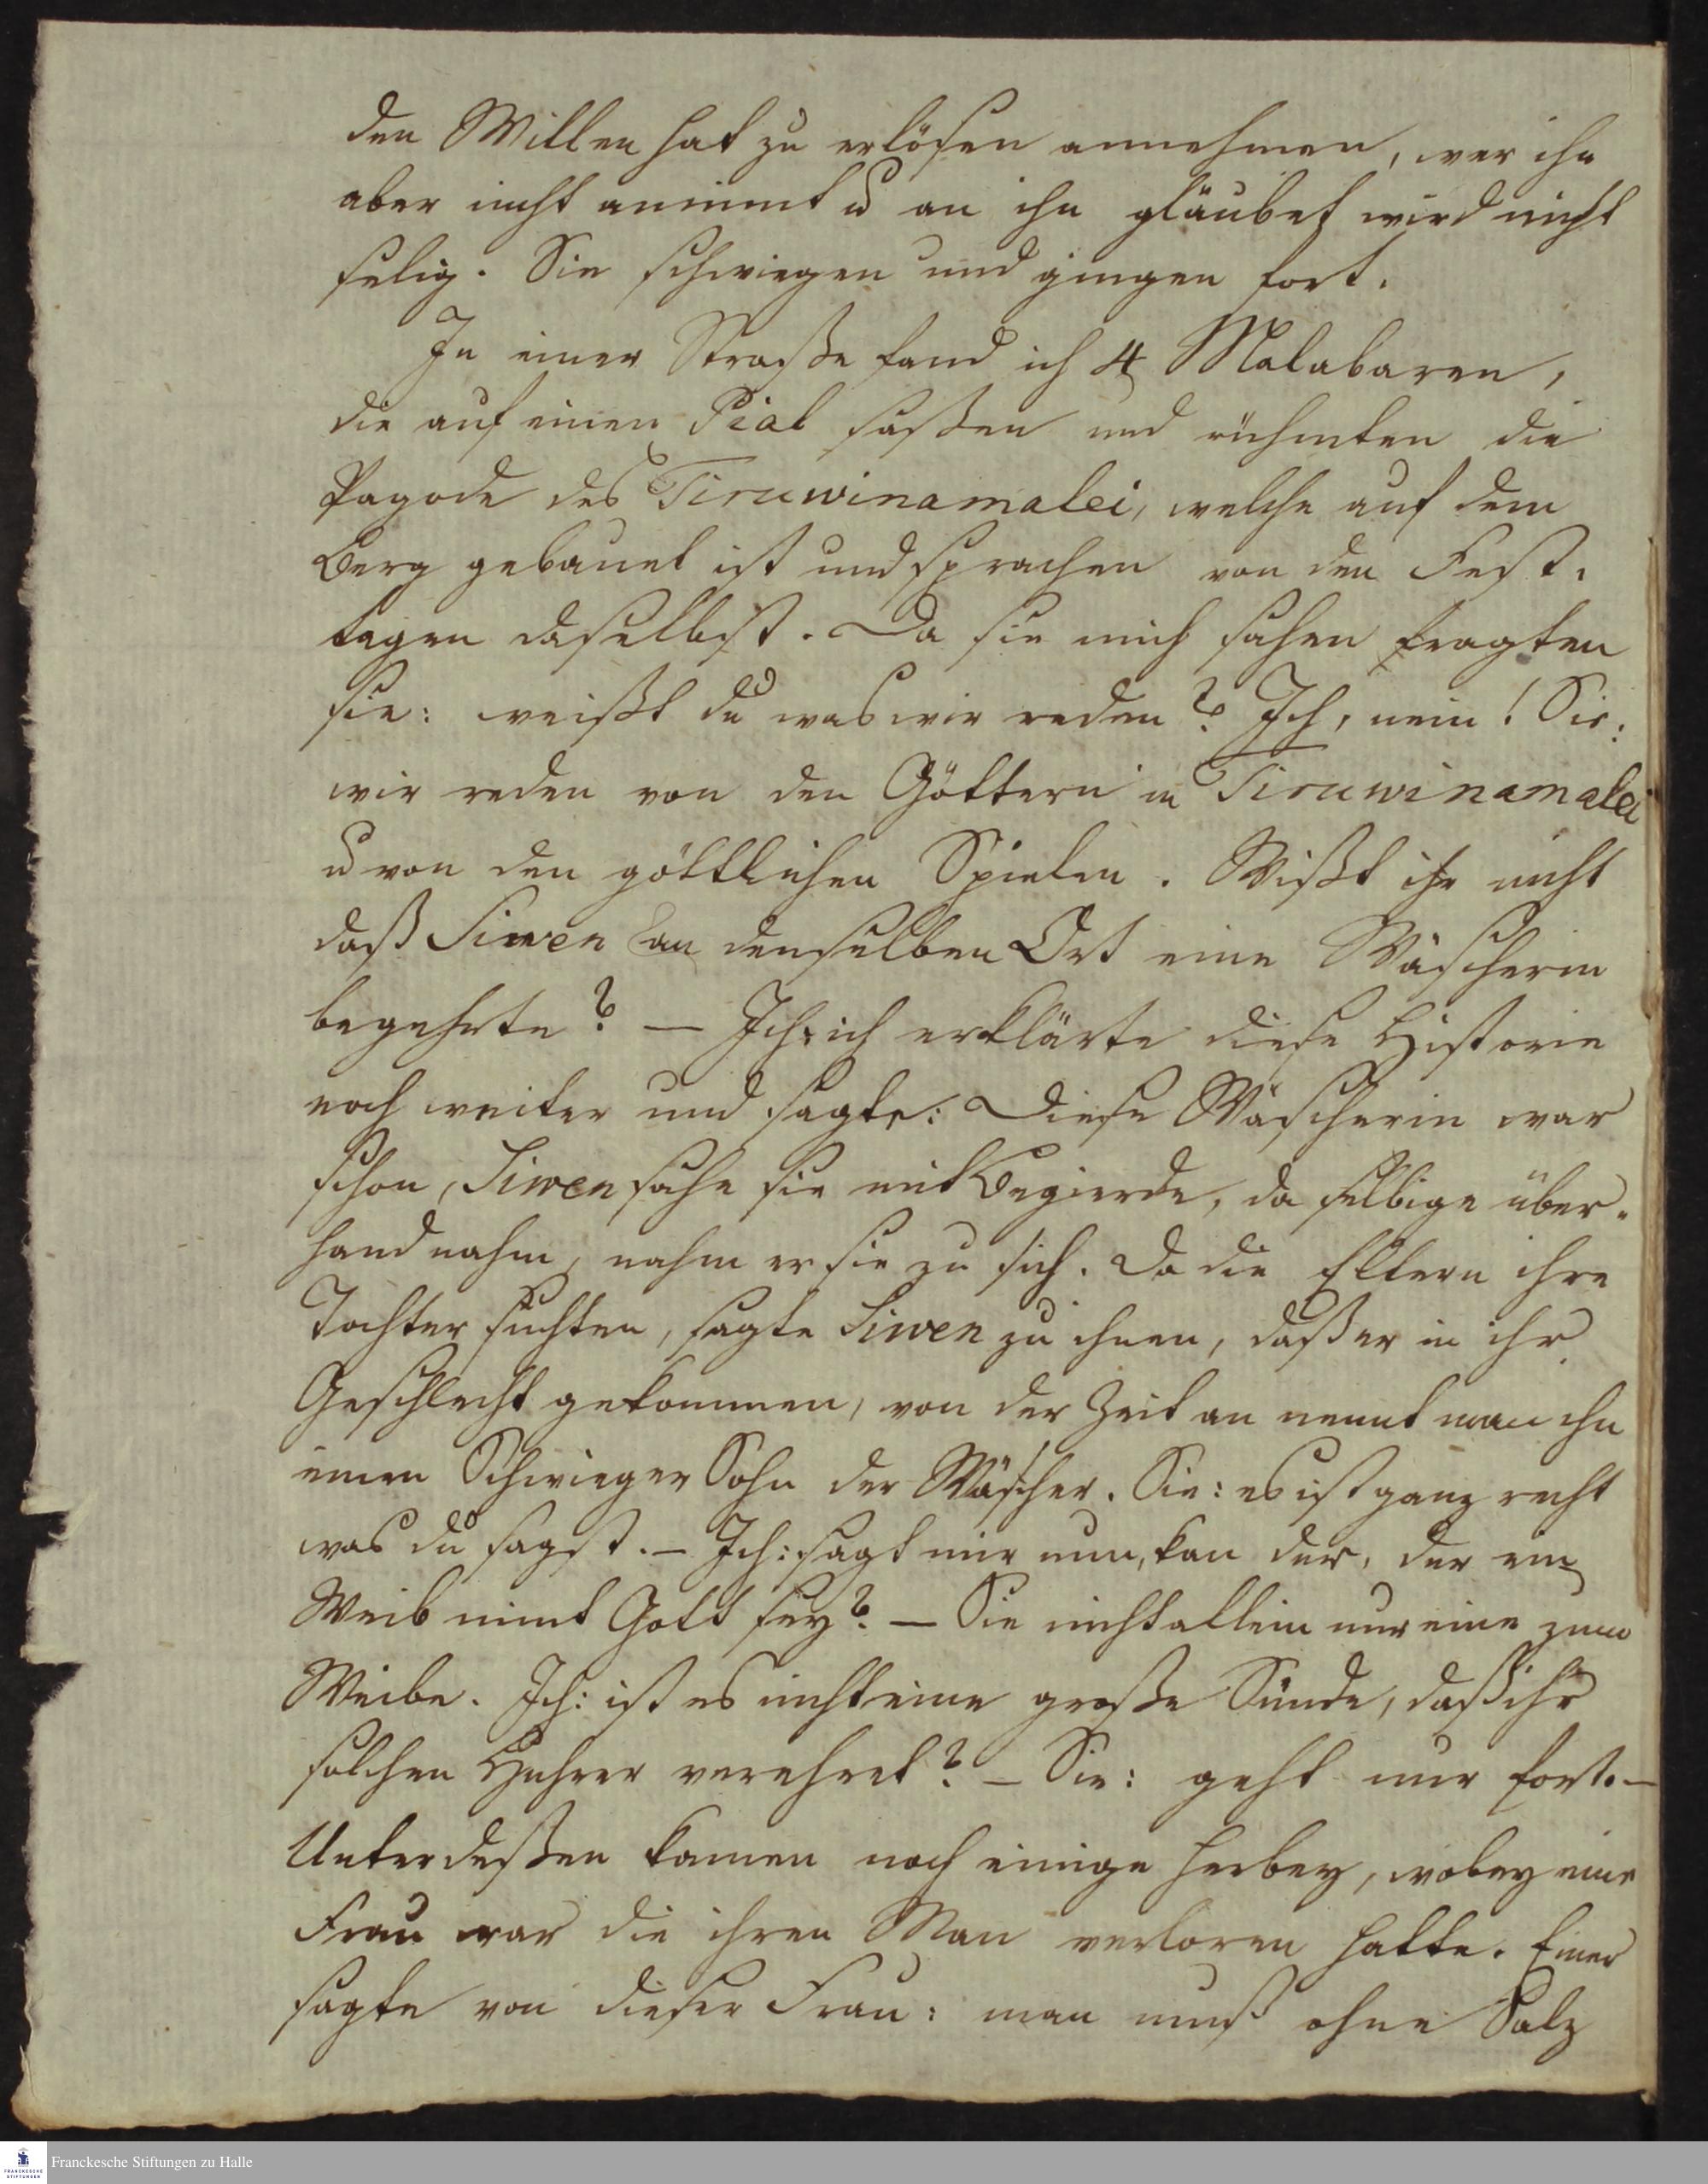 den Willen hat zu erlösen annehmen, wer ihn
aber nicht annimt u an ihn gläubet wird nicht
selig. Sie schwiegen und gingen fort.
In einer Straße fand ich 4 Malabaren,
die auf einen Pial saßen und rühmten die
Pagode des Tiruwinamalei, welche auf dem
Berg gebauet ist und sprachen von den Fest-
tagen daselbst. Da sie mich sahen fragten
sie: weißt du was wir reden? Ich, nein! Sie:
wir reden von den Göttern in Tiruwinamalei
u von den göttlichen Spielen. Wißt ihr nicht
daß Siwen an denselben Ort eine Wäscherin
begehrte? – Ich: ich erklärte diese Historie
noch weiter und sagte: Diese Wäscherin war
schon, Siwen sahe sie mit Begierde, da selbige über-
hand nahm, nahm er sie zu sich. Da die Eltern ihre
Tochter suchten, sagte Siwen zu ihnen, daß er in ihr
Geschlecht gekommen, von der Zeit an nennt man ihn
einen Schwieger Sohn der Wäscher. Sie: es ist ganz recht
was du sagst. – Ich: sagt mir nun, kan der, der ein
Weib nimt Gott sey? – Sie nicht allein nur eine zum
Weibe. Ich: ist es nicht eine große Sünde, daß ihr
solchen Huhrer verehret? – Sie: geht nur fort. –
Unterdeßen kamen noch einige herbey, wobey eine
Frau war die ihren Man verloren hatte. Einer
sagte von dieser Frau: man muß ohne Salz
Franckesche Stiftungen zu Halle
FRANCKESCHE
STIFTUNGEN